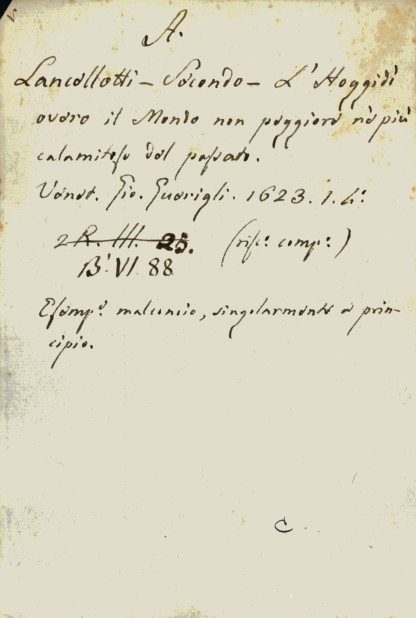 A.
Lancellotti - Secondo - L'Hoggidì
overo il Mondo non peggiore nè più
calamitoso del passato.
Venet. Gio. Guerigli. 1623. 1. 4.º
2 R. III. 25. (risc.º comp.º)
B'. VI. 88
Esemp.º malconcio, singolarmente a prin-
cipio.
C